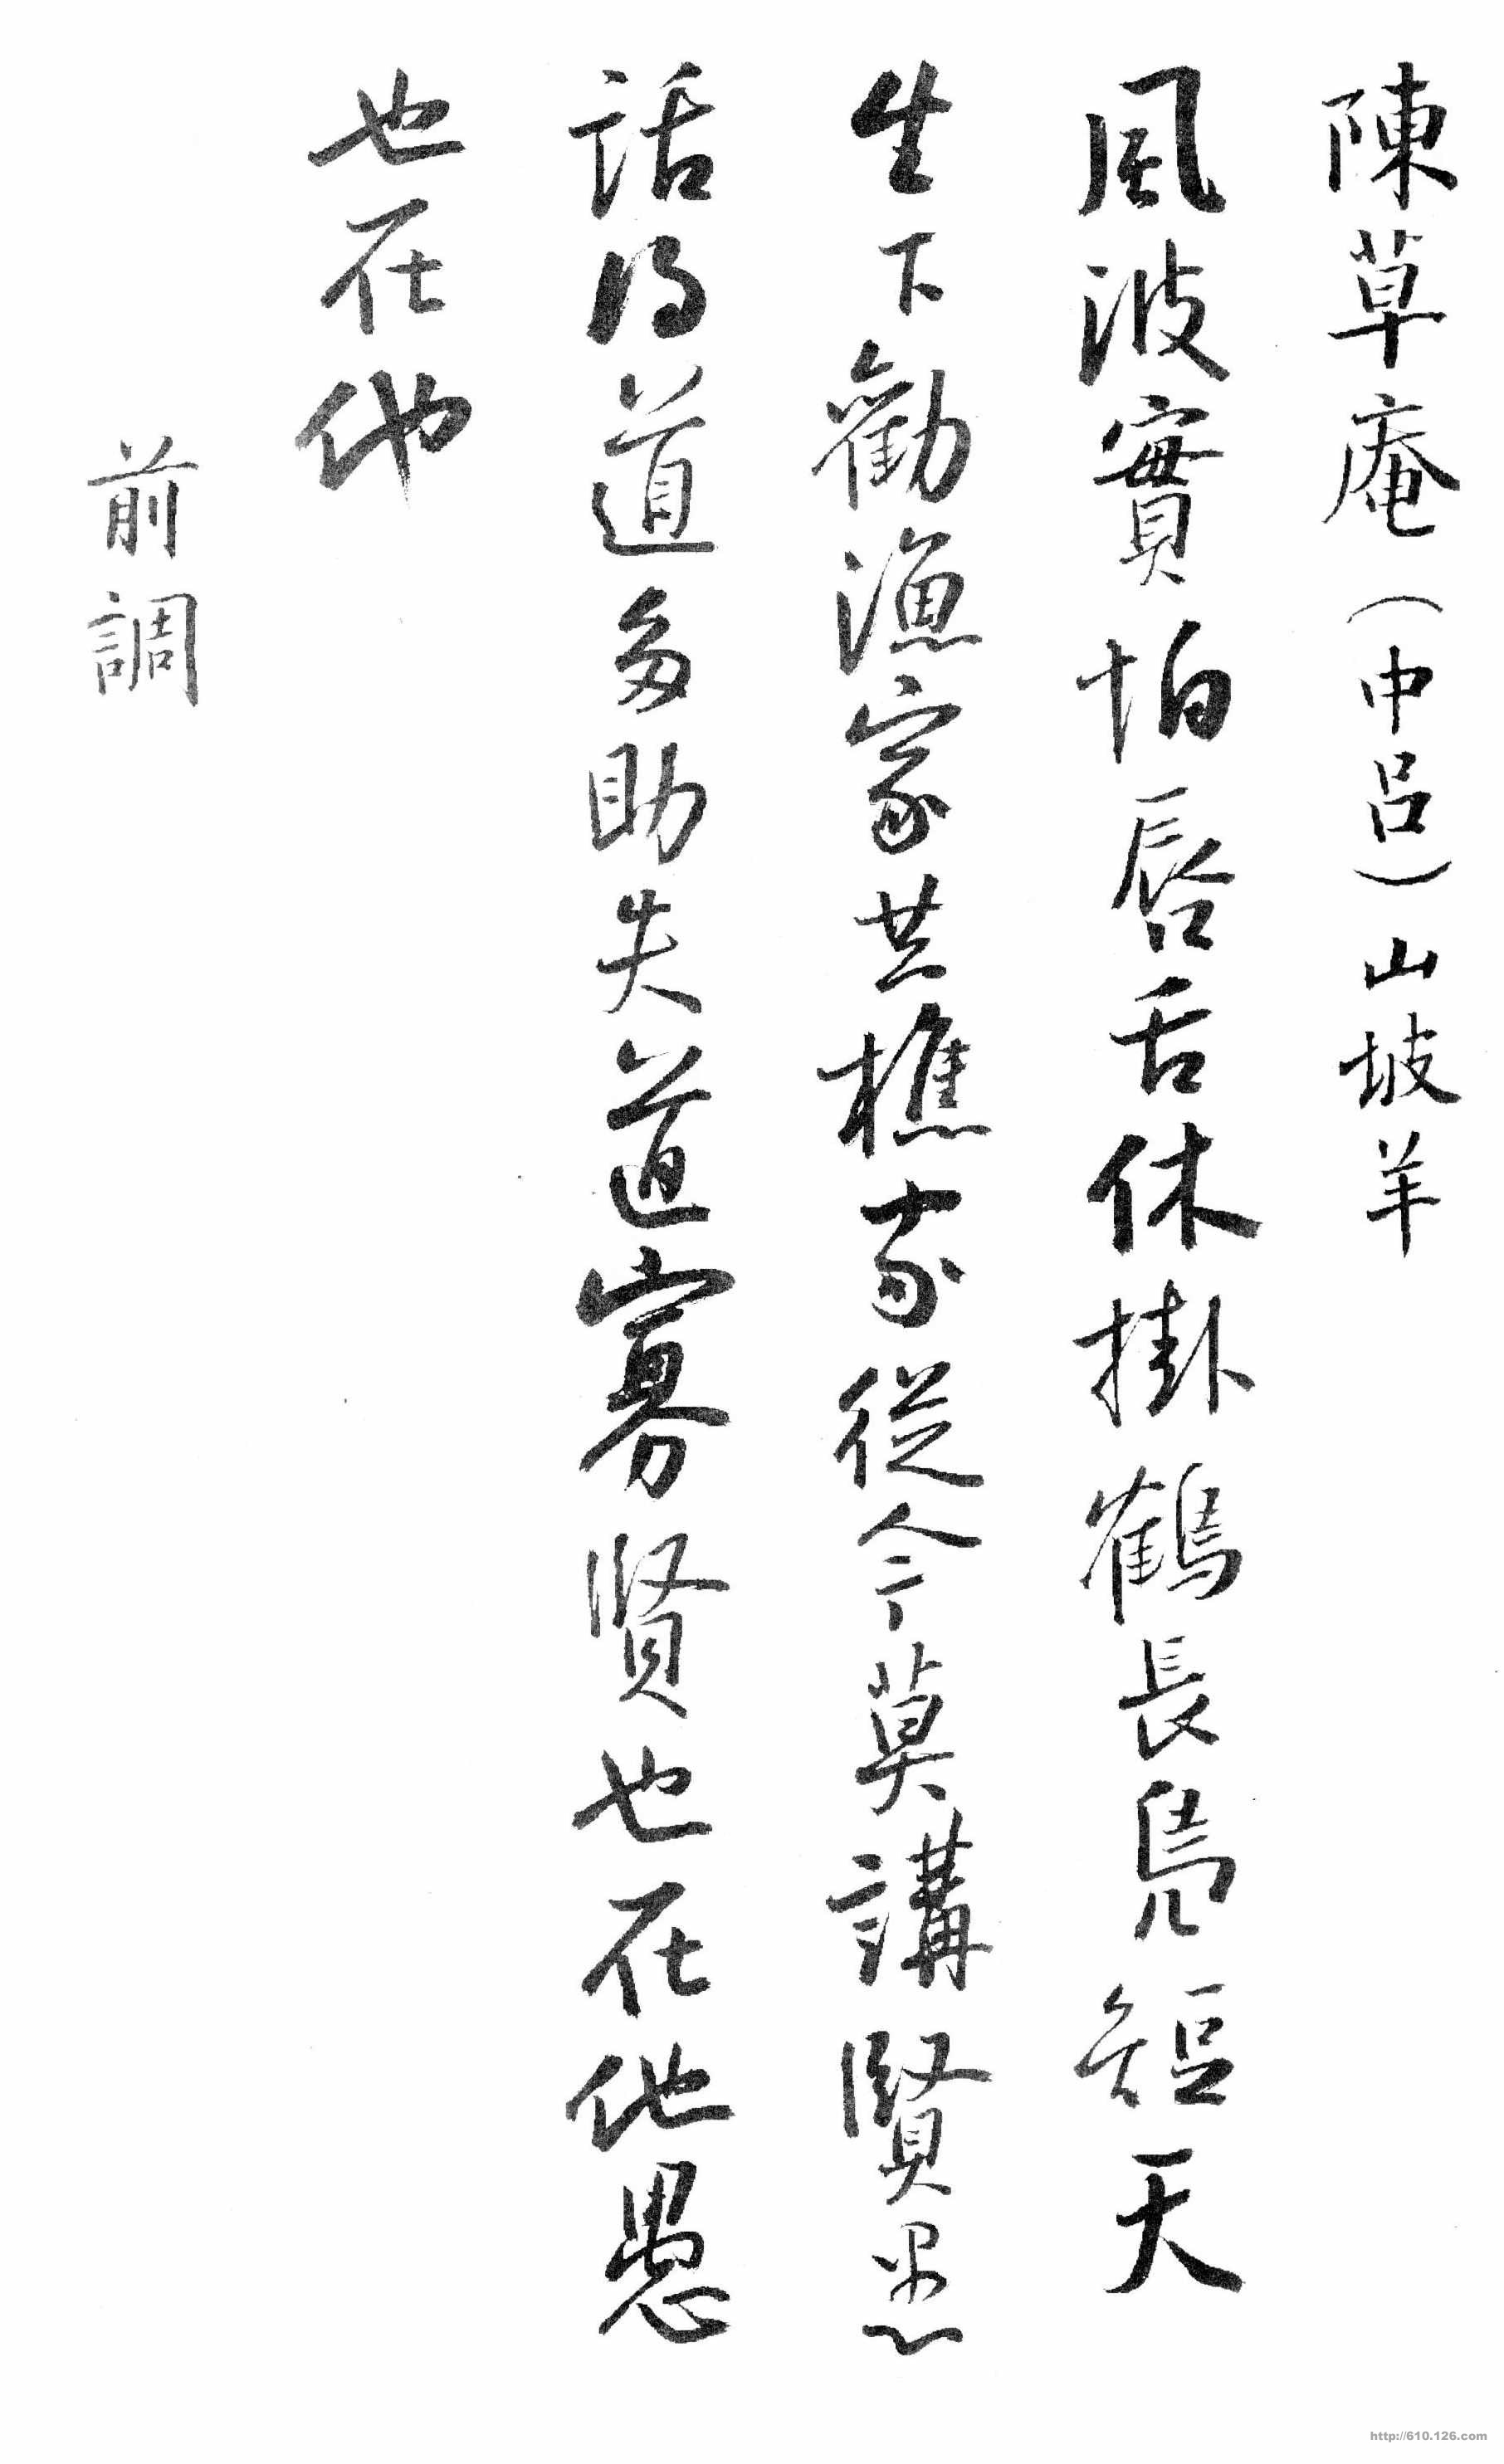 陳草庵（中呂）山坡羊
風波實怕唇舌休掛鶴長鳧短天
生下勸漁家共樵家從今莫講賢愚
話得道多助失道寡賢也在他愚
也在他
前調
http://610.126.com